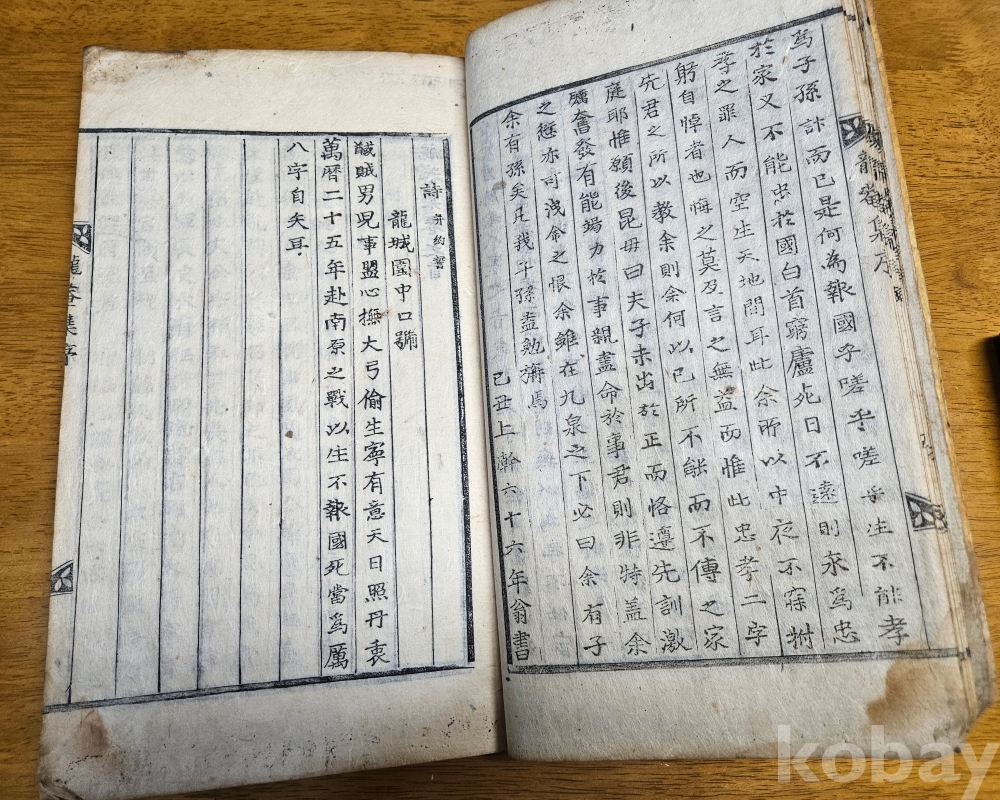 爲子孫計而已是何爲報國乎嗟乎嗟乎生不能孝
於家又不能忠於國白首窮廬死日不遠則永爲忠
孝之罪人而空生天地間耳此余所以中夜不寐拊
躬自悼者也悔之莫及言之無益而惟此忠孝二字
先君之所以敎余則余何以已所不能而不傳之家
庭耶惟願後昆毋曰夫子未出於正而恪遵先訓激
厲奮發有能竭力於事親盡命於事君則非特盖余
之愆亦可洩余之恨余雖在九泉之下必曰余有子
余有孫矣凡我子孫盍勉旃焉
己丑上澣六十六年翁書
詩 幷約誓
龍城圍中口號
馘賊男兒事盟心撫大弓偷生寧有意天日照丹衷
萬曆二十五年赴南原之戰以生不報國死當爲厲
八字自矢耳
龍菴集序
kobay